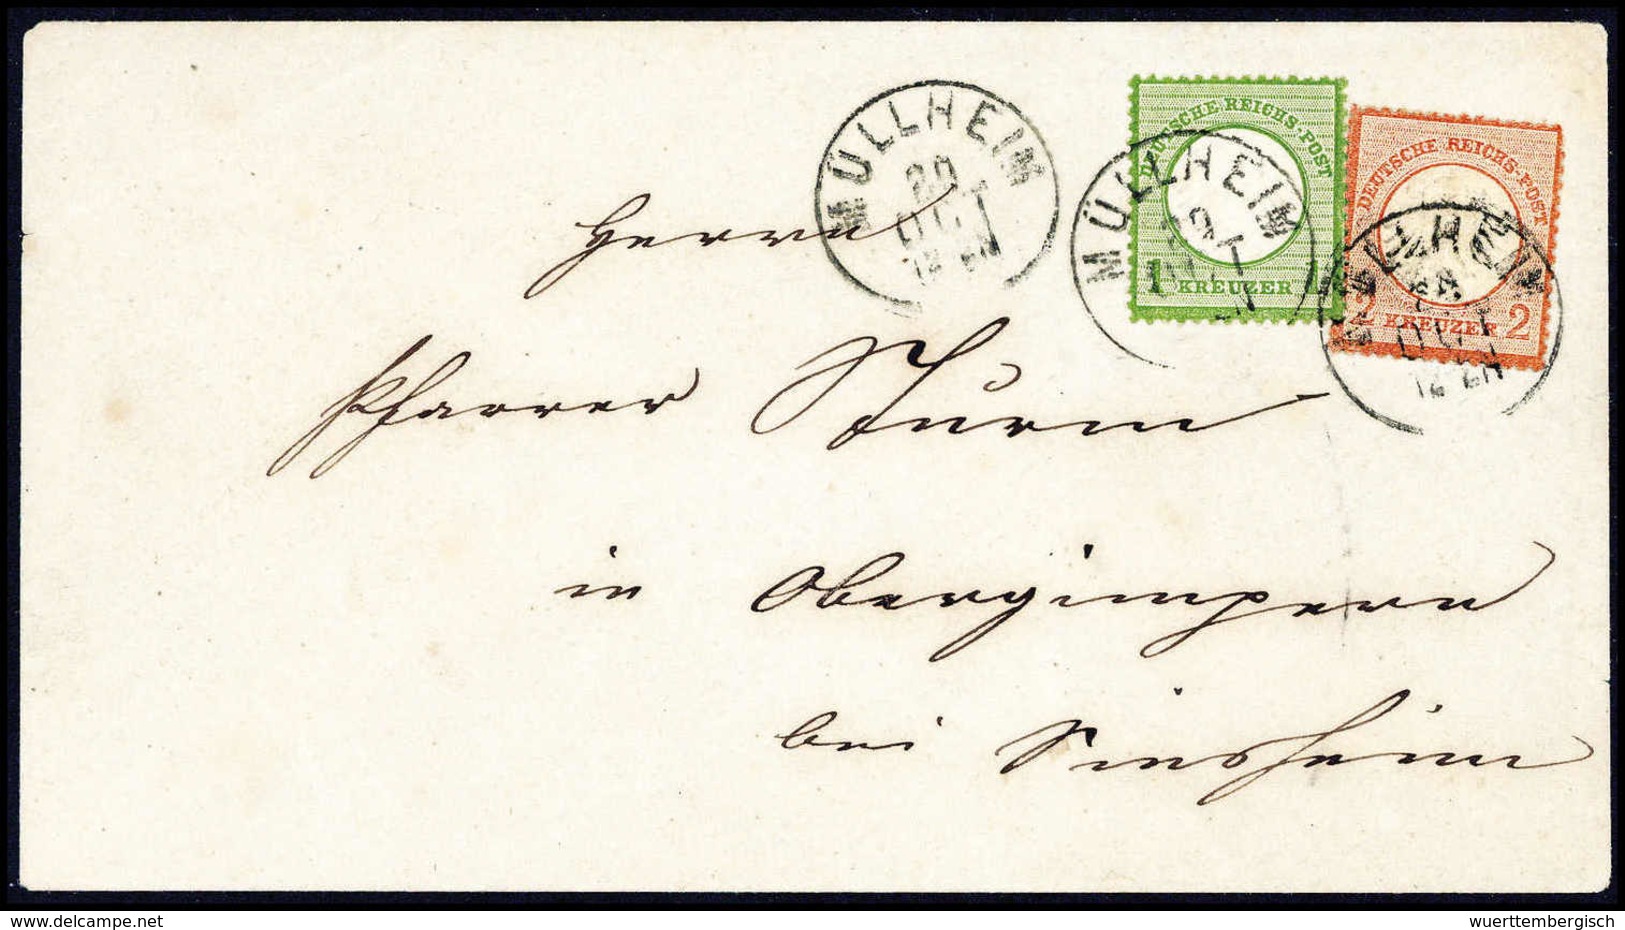 MÜLLHEIM
20
OCT
DEUTSCHE REICHS-POST
1 KREUZER
MÜLLHEIM
OCT
DEUTSCHE REICHS-POST
2 KREUZER 2
OCT
Herrn
Pfarrer Sturm
in Obergimpern
bei Sinsheim
www.delcampe.net
wuerttembergisch